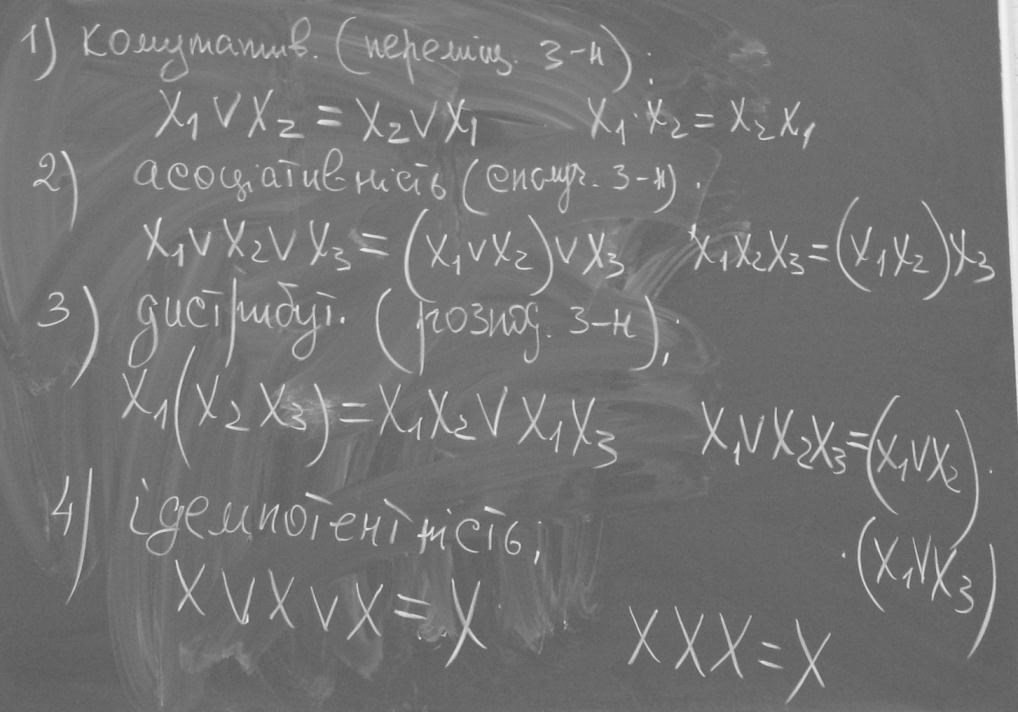 1) комутатив. (переміщ. з-н);
X₁ ∨ X₂ = X₂ ∨ X₁ X₁ · X₂ = X₂ X₁
2) асоціативність (сполуч. з-н).
X₁ ∨ X₂ ∨ X₃ = (X₁ ∨ X₂) ∨ X₃ X₁X₂X₃ = (X₁X₂)X₃
3) дистрибут. (розпод. з-н);
X₁(X₂ X₃) = X₁X₂ ∨ X₁X₃ X₁ ∨ X₂X₃ = (X₁ ∨ X₂) ·
· (X₁ ∨ X₃)
4) ідемпотентність;
X ∨ X ∨ X = X XXX = X